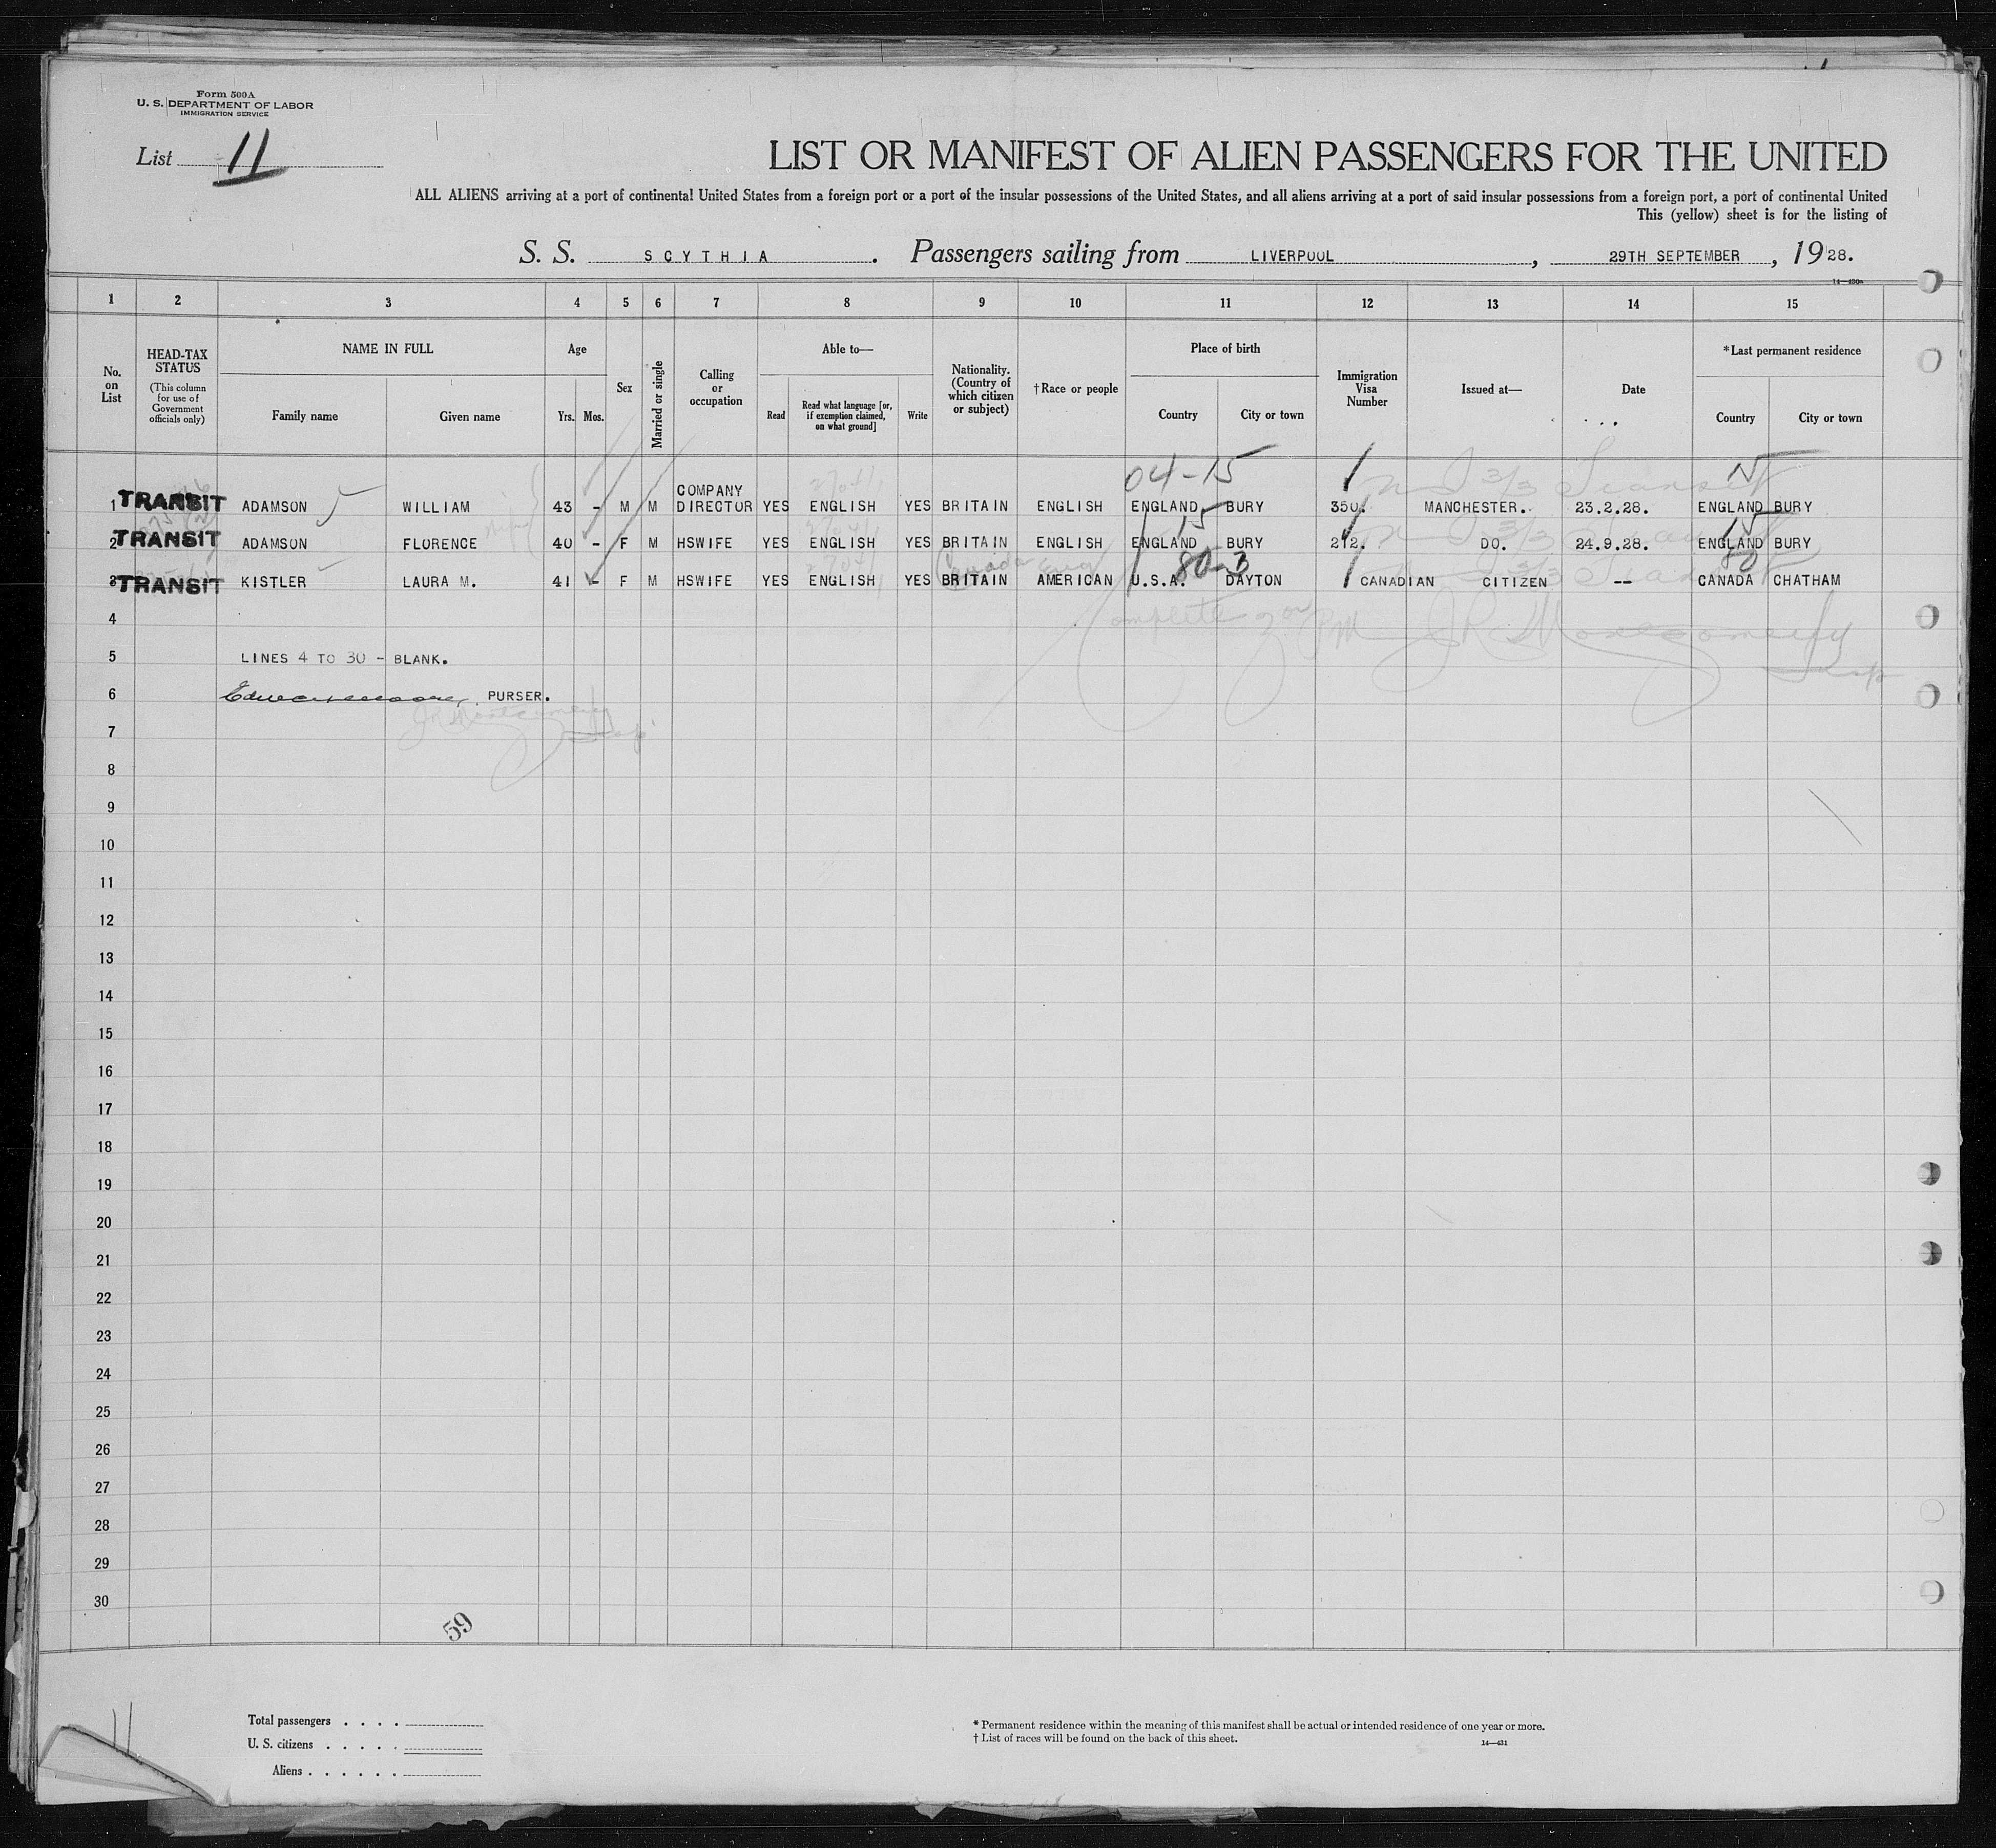 Form 500A
U. S. DEPARTMENT OF LABOR
IMMIGRATION SERVICE
List 11
LIST OR MANIFEST OF ALIEN PASSENGERS FOR THE UNITED
ALL ALIENS arriving at a port of continental United States from a foreign port or a port of the insular possessions of the United States, and all aliens arriving at a port of said insular possessions from a foreign port, a port of continental United
This (yellow) sheet is for the listing of
S. S. SCYTHIA. Passengers sailing from LIVERPOOL, 29TH SEPTEMBER, 1928.
14—430a
1 2 3 4 5 6 7 8 9 10 11 12 13 14 15
No. on List
HEAD-TAX STATUS (This column for use of Government officials only)
NAME IN FULL Family name Given name
Age Yrs. Mos.
Sex
Married or single
Calling or occupation
Able to— Read Read what language [or, if exemption claimed, on what ground] Write
Nationality. (Country of which citizen or subject)
†Race or people
Place of birth Country City or town
Immigration Visa Number
Issued at—
Date
*Last permanent residence Country City or town
04-15 15
1 TRANSIT ADAMSON WILLIAM 43 - M M COMPANY DIRECTOR YES ENGLISH YES BRITAIN ENGLISH ENGLAND BURY 350. MANCHESTER. 23.2.28. ENGLAND BURY
15 15
2 TRANSIT ADAMSON FLORENCE 40 - F M HSWIFE YES ENGLISH YES BRITAIN ENGLISH ENGLAND BURY 212. DO. 24.9.28. ENGLAND BURY
Canada 80-3 80
3 TRANSIT KISTLER LAURA M. 41 - F M HSWIFE YES ENGLISH YES BRITAIN AMERICAN U.S.A. DAYTON CANADIAN CITIZEN -- CANADA CHATHAM
4
J R Montgomery
5 LINES 4 TO 30 - BLANK.
6 PURSER.
7
8
9
10
11
12
13
14
15
16
17
18
19
20
21
22
23
24
25
26
27
28
29
30
59
11
Total passengers . . . .
U. S. citizens . . . . .
Aliens . . . . . .
* Permanent residence within the meaning of this manifest shall be actual or intended residence of one year or more.
† List of races will be found on the back of this sheet.
14—431